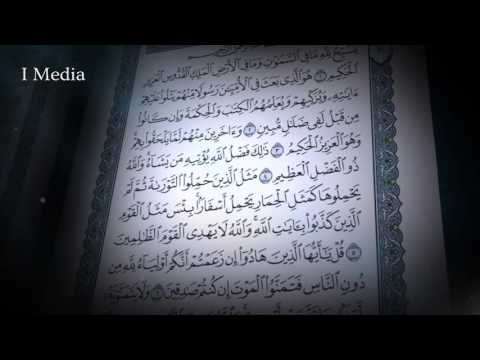 I Media
يُسَبِّحُ لِلَّهِ مَا فِي ٱلسَّمَٰوَٰتِ وَمَا فِي ٱلْأَرْضِ ٱلْمَلِكِ ٱلْقُدُّوسِ ٱلْعَزِيزِ
ٱلْحَكِيمِ ١ هُوَ ٱلَّذِي بَعَثَ فِي ٱلْأُمِّيِّـۧنَ رَسُولًا مِّنْهُمْ يَتْلُوا۟ عَلَيْهِمْ
ءَايَٰتِهِۦ وَيُزَكِّيهِمْ وَيُعَلِّمُهُمُ ٱلْكِتَٰبَ وَٱلْحِكْمَةَ وَإِن كَانُوا۟
مِن قَبْلُ لَفِي ضَلَٰلٍ مُّبِينٍ ٢ وَءَاخَرِينَ مِنْهُمْ لَمَّا يَلْحَقُوا۟ بِهِمْ
وَهُوَ ٱلْعَزِيزُ ٱلْحَكِيمُ ٣ ذَٰلِكَ فَضْلُ ٱللَّهِ يُؤْتِيهِ مَن يَشَآءُ وَٱللَّهُ
ذُو ٱلْفَضْلِ ٱلْعَظِيمِ ٤ مَثَلُ ٱلَّذِينَ حُمِّلُوا۟ ٱلتَّوْرَىٰةَ ثُمَّ لَمْ
يَحْمِلُوهَا كَمَثَلِ ٱلْحِمَارِ يَحْمِلُ أَسْفَارًۢا بِئْسَ مَثَلُ ٱلْقَوْمِ
ٱلَّذِينَ كَذَّبُوا۟ بِـَٔايَٰتِ ٱللَّهِ وَٱللَّهُ لَا يَهْدِي ٱلْقَوْمَ ٱلظَّٰلِمِينَ
٥ قُلْ يَٰٓأَيُّهَا ٱلَّذِينَ هَادُوٓا۟ إِن زَعَمْتُمْ أَنَّكُمْ أَوْلِيَآءُ لِلَّهِ مِن
دُونِ ٱلنَّاسِ فَتَمَنَّوُا۟ ٱلْمَوْتَ إِن كُنتُمْ صَٰدِقِينَ ٦ وَلَا يَتَمَنَّوْنَهُۥٓ